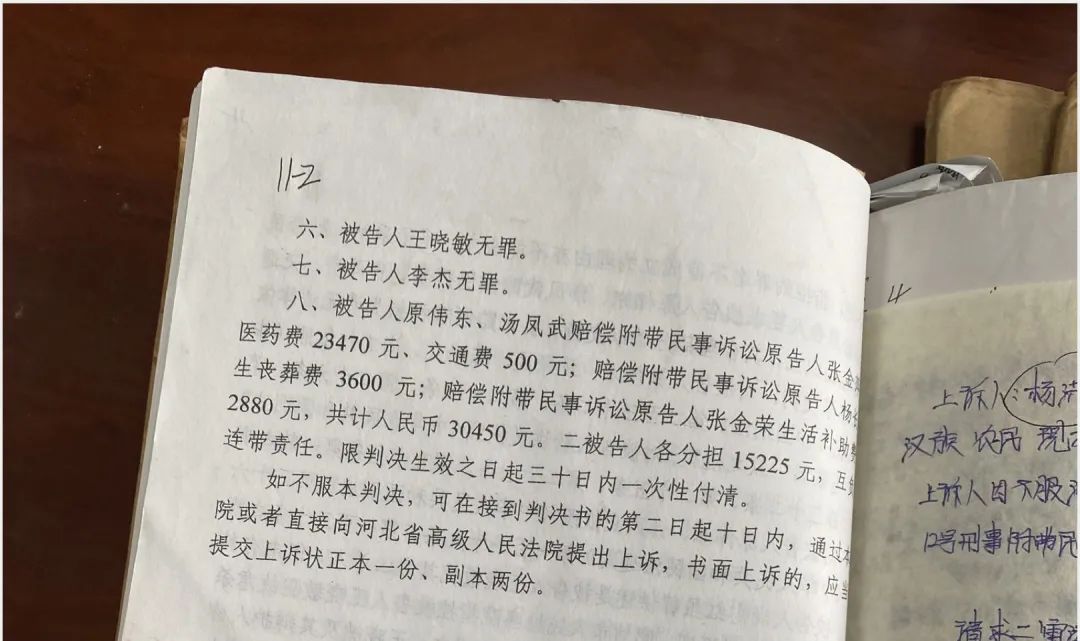 11-2
六、被告人王晓敏无罪。
七、被告人李杰无罪。
八、被告人原伟东、汤凤武赔偿附带民事诉讼原告人张金
医药费 23470 元、交通费 500 元；赔偿附带民事诉讼原告人杨
生丧葬费 3600 元；赔偿附带民事诉讼原告人张金荣生活补助
2880 元，共计人民币 30450 元。二被告人各分担 15225 元，互
连带责任。限判决生效之日起三十日内一次性付清。
如不服本判决，可在接到判决书的第二日起十日内，通过
院或者直接向河北省高级人民法院提出上诉，书面上诉的，应当
提交上诉状正本一份、副本两份。
4
上诉人：杨
汉族 农民 现
上诉人因不服
号刑事附带民
请求二审